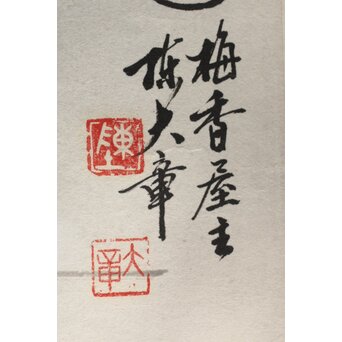 梅香屋主
陈大章
陳
大章